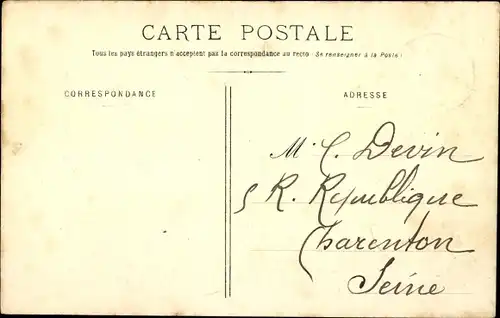 CARTE POSTALE
Tous les pays étrangers n'acceptent pas la correspondance au recto (Se renseigner à la Poste)
CORRESPONDANCE
ADRESSE
M. C. Devin
5 R. République
Charenton
Seine